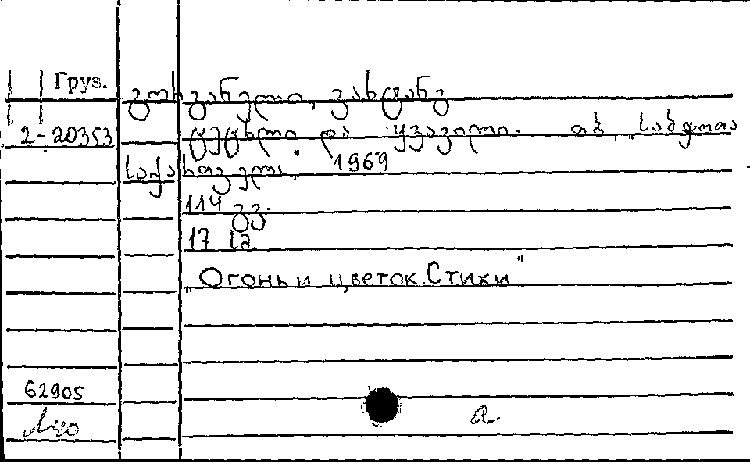 Груз.
გორგანელი, ვახტანგ
2-20353 ცეცხლი და ყვავილი. თბ „საბჭოთა
საქართველო, 1969
114 გვ.
17 სმ
„Огонь и цветок. Стихи"
62905